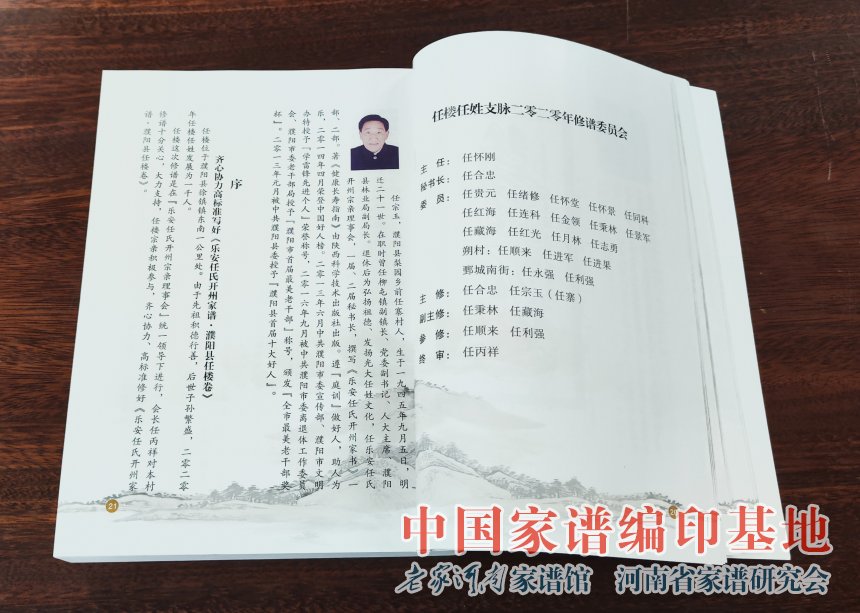 任楼任姓支脉二零二零年修谱委员会
主　任：任怀刚
秘书长：任合忠
委　员：任贵元　任绪修　任怀堂　任怀景　任同科
任红海　任连科　任金领　任秉林　任景军
任藏海　任红光　任月林　任志勇
朔村：任顺来　任进军　任进果
鄄城南街：任永强　任利强
主　修：任合忠　任宗玉（任寨）
副主修：任秉林　任藏海
参　修：任顺来　任利强
终　审：任丙祥
任宗玉，濮阳县梨园乡前任寨村人，生于一九四五年九月五日，明
迁二十一世。在职时曾任柳屯镇副镇长、党委副书记、人大主席、濮阳
县林业局副局长。退休后为弘扬祖德、发扬光大任姓文化，任乐安任氏
开州宗亲理事会，一届、二届秘书长，撰写《乐安任氏开州家书》一
部、二部。著《健康长寿指南》由陕西科学技术出版社出版。遵『庭训』做好人，助人为
乐，二零一四年四月荣登中国好人榜。二零一三年六月中共濮阳市委宣传部、濮阳市文明
办特授予『学雷锋先进个人』荣誉称号，二零一六年九月被中共濮阳市委离退休工作委员
会、濮阳市委老干部局授予『濮阳市首届最美老干部』称号，颁发『全市最美老干部奖
杯』。二零一三年元月被中共濮阳县委授予『濮阳县首届十大好人』。
序
齐心协力高标准写好《乐安任氏开州家谱·濮阳县任楼卷》
任楼位于濮阳县徐镇镇东南一公里处。由于先祖积德行善，后世子孙繁盛，二零二零
年任楼任姓发展为一千人。
任楼这次修谱是在『乐安任氏开州宗亲理事会』统一领导下进行，会长任丙祥对本村
修谱十分关心，大力支持，任楼宗亲积极参与，齐心协力、高标准修好《乐安任氏开州家
谱·濮阳县任楼卷》。
21
中国家谱编印基地
老家河南家谱馆　河南省家谱研究会